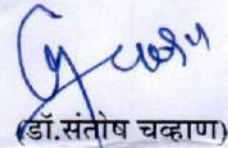 (डॉ.संतोष चव्हाण)